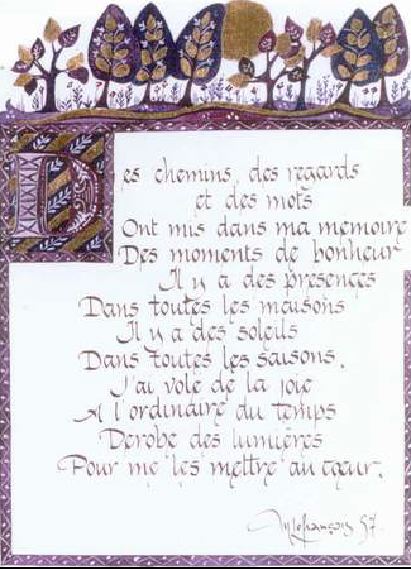 Des chemins, des regards
et des mots
Ont mis dans ma memoire
Des moments de bonheur
Il y a des presences
Dans toutes les maisons
Il y a des soleils
Dans toutes les saisons.
J'ai vole de la joie
A l'ordinaire du temps
Derobe des lumières
Pour me les mettre au cœur.